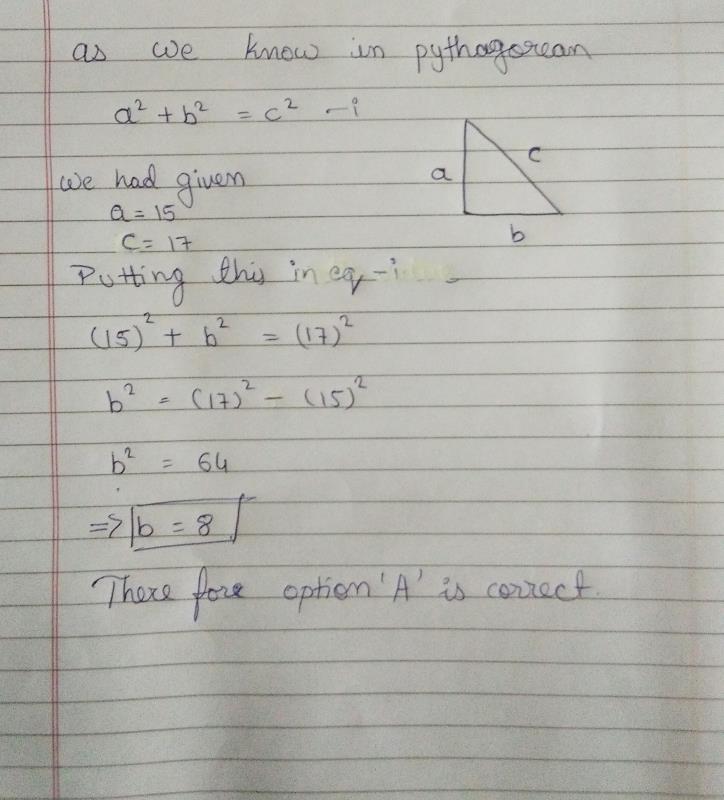 as we know in pythagorean
a² + b² = c² - i
a
c
b
We had given
a = 15
c = 17
Putting this in eq - i
(15)² + b² = (17)²
b² = (17)² - (15)²
b² = 64
=> b = 8
There fore option 'A' is correct.